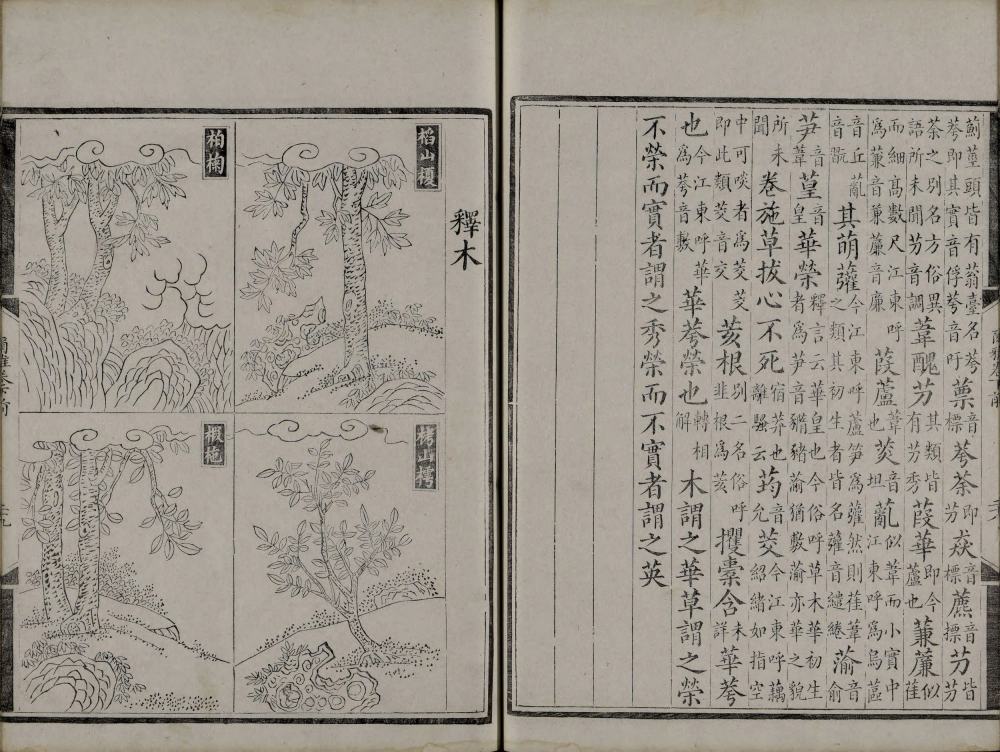 薊莖頭皆有蓊臺名荂荂即其實音俘荂音吁蔈音標荂荼即芀猋音標藨音標芀皆芀
荼之別名方俗異語所未聞芀音調葦醜芀其類皆有芀秀葭華即今蘆也蒹薕似萑
而細高數尺江東呼為蒹音兼薕音廉葭蘆葦也菼音坦薍似葦而小實中江東呼為烏蓲
音丘薍音其萌虇今江東呼蘆筍為虇然則萑葦之類其初生者皆名虇音繾綣蕍音俞
芛音葦葟音皇華榮釋言云華皇也今俗呼草木華初生者為芛音豨豬蕍猶敷蕍亦華之貌
所未聞卷施草拔心不死宿莽也離騷云荺音允茭今江東呼藕紹緒如指空
中可啖者為茭茭即此類茭音交荄根別二名俗呼韭根為荄攫橐含未詳華荂
也今江東呼華為荂音敷華荂榮也轉相解木謂之華草謂之榮
不榮而實者謂之秀榮而不實者謂之英
釋木
槄山榎
栲山樗
柏椈
椴柂